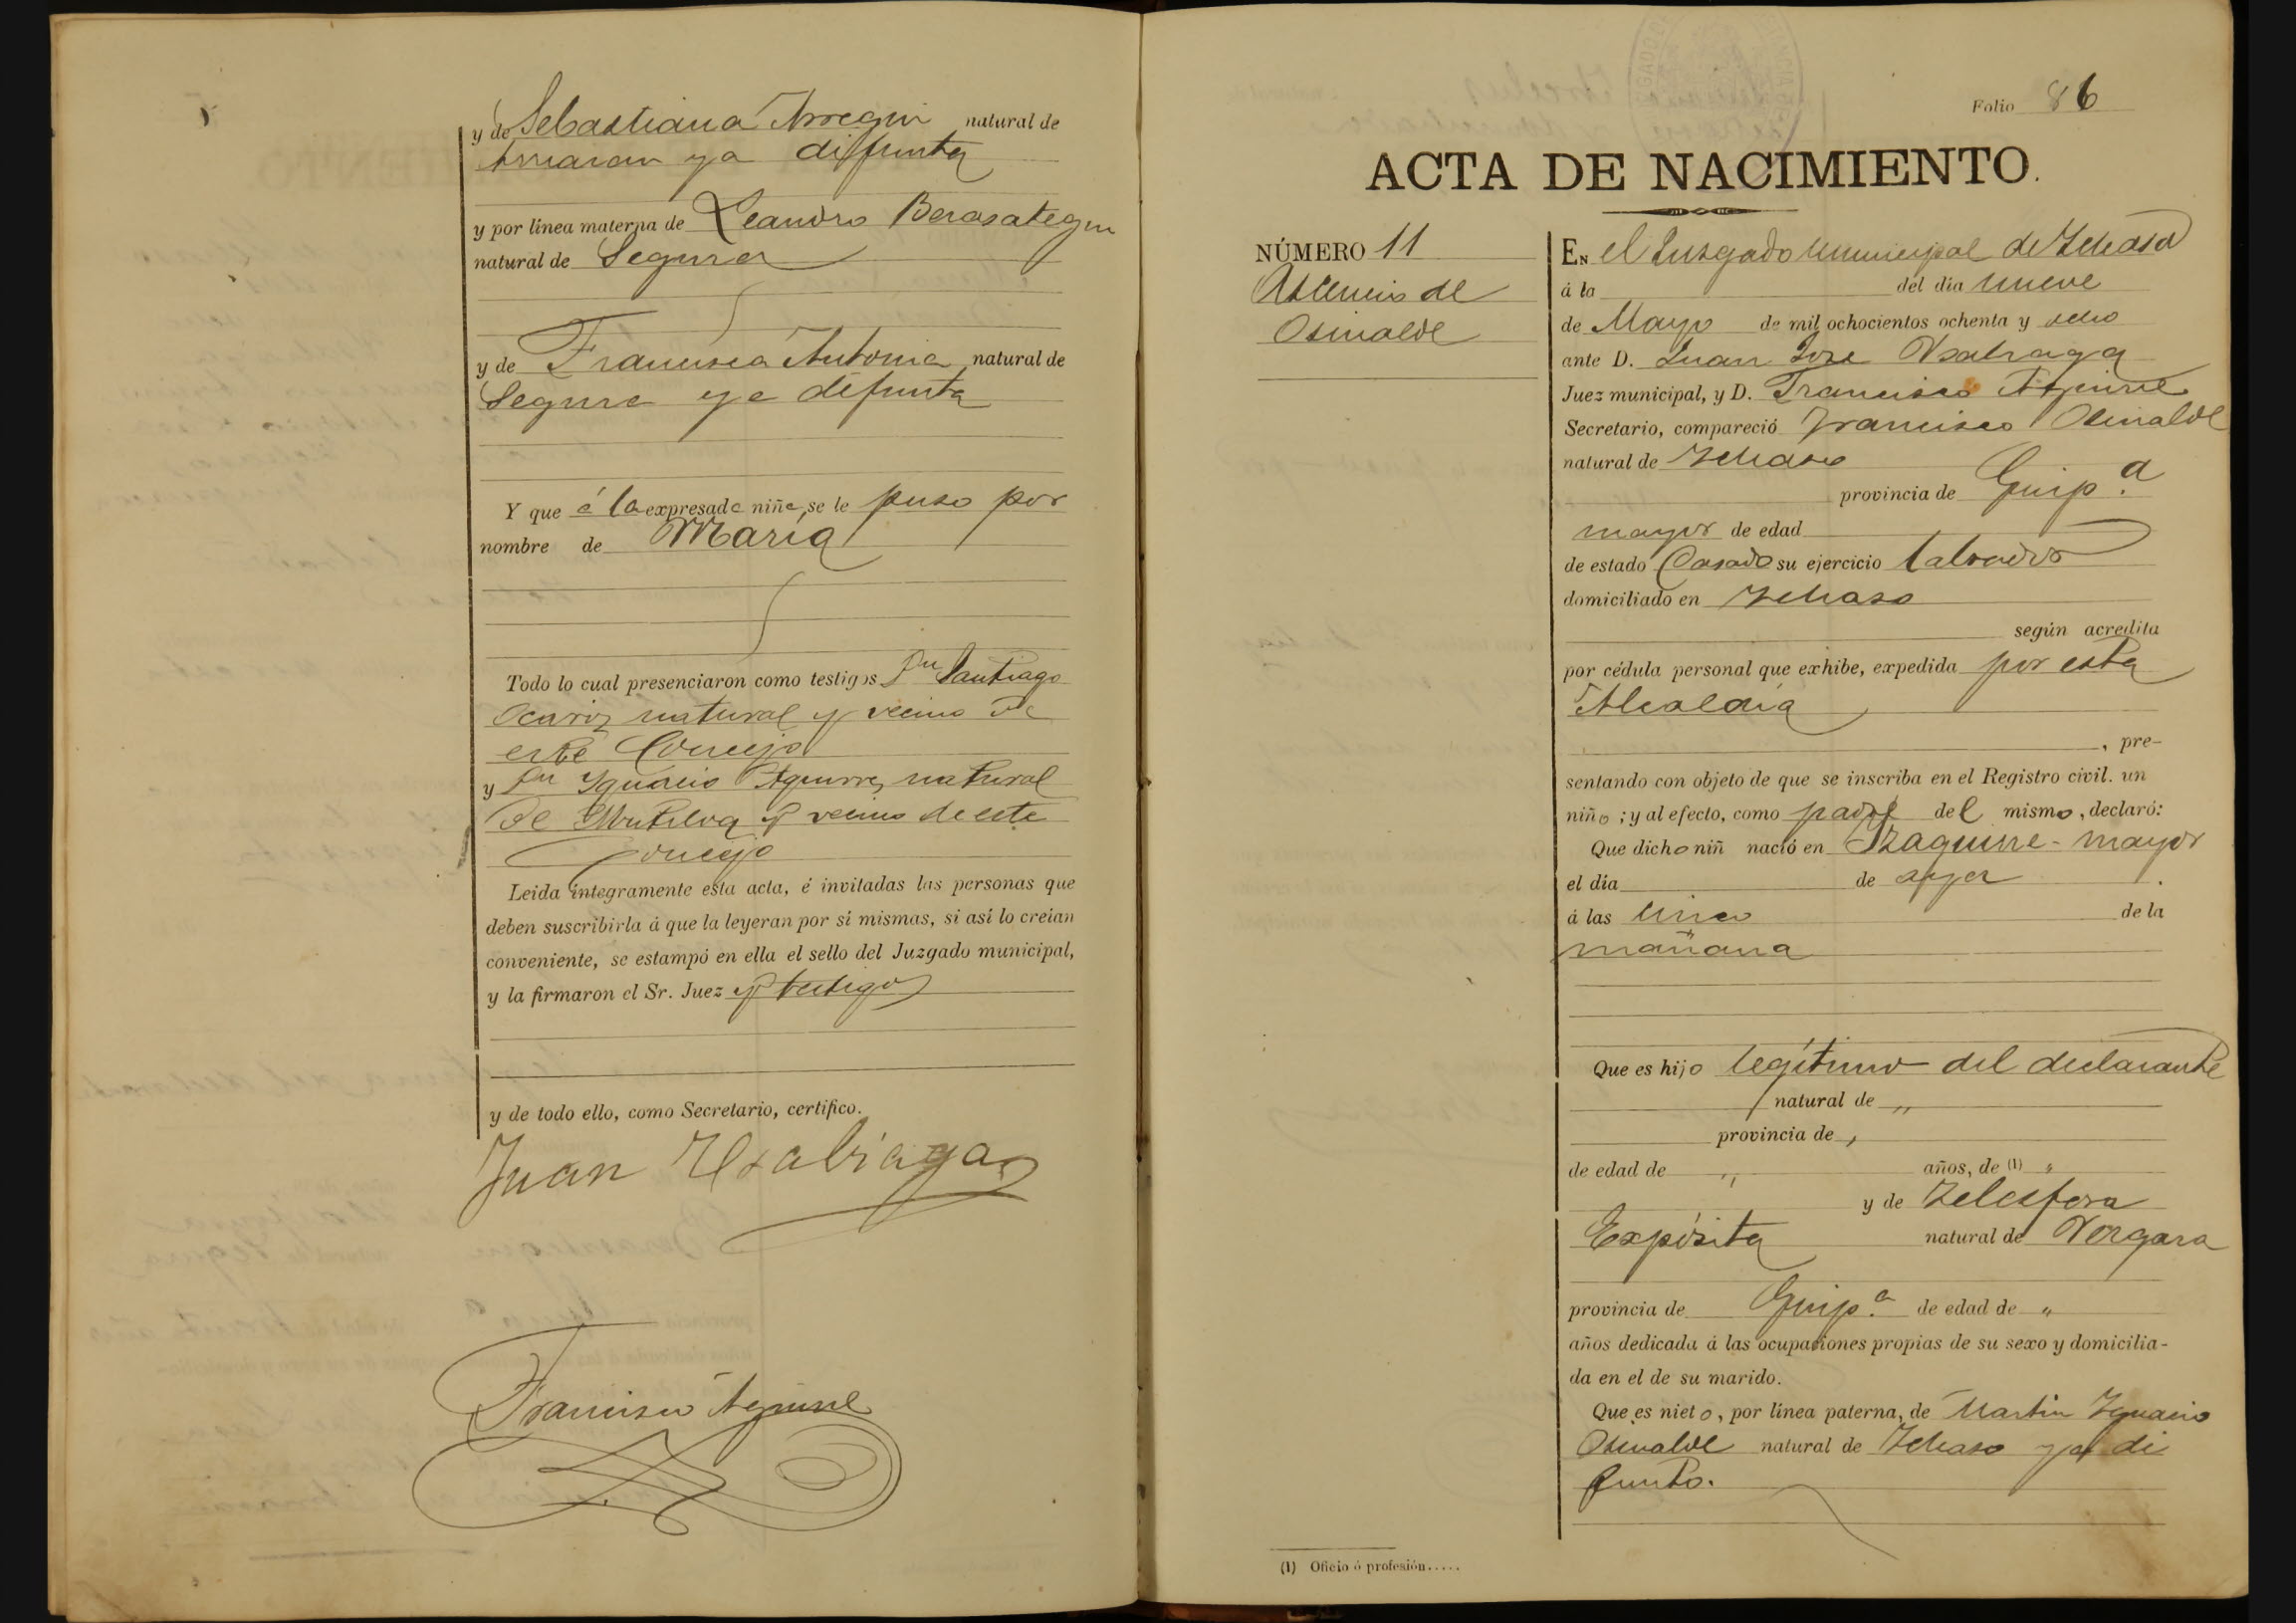 y de Sebastiana Arregui natural de
ya difunta
y por línea materna de Leandro Berasategui
natural de Segura
y de Francisca Antonia natural de
Segura ya difunta
Y que á la expresada niña, se le puso por
nombre de María
Todo lo cual presenciaron como testigos Dn Santiago
Ocariz natural y vecino de
este Concejo
y Dn Ygnacio Aguirre, natural
de Mutiloa y vecino de este
Concejo
Leida íntegramente esta acta, é invitadas las personas que
deben suscribirla á que la leyeran por sí mismas, si así lo creían
conveniente, se estampó en ella el sello del Juzgado municipal,
y la firmaron el Sr. Juez y testigos
y de todo ello, como Secretario, certifico.
Juan Usabiaga
Francisco Aguirre
Folio 86
ACTA DE NACIMIENTO.
NÚMERO 11
de
Osinalde
EN el Juzgado municipal de Ychaso
á la del dia nueve
de Mayo de mil ochocientos ochenta y ocho
ante D. Juan José Usabiaga
Juez municipal, y D. Francisco Aguirre
Secretario, compareció Francisco Osinalde
natural de Ychaso
provincia de Guip.a
mayor de edad
de estado Casado su ejercicio labrador
domiciliado en Ychaso
según acredita
por cédula personal que exhibe, expedida por esta
Alcaldía
, pre-
sentando con objeto de que se inscriba en el Registro civil. un
niño ; y al efecto, como padre del mismo, declaró:
Que dicho niñ nació en Yzaguirre-mayor
el día de ayer .
á las cinco de la
mañana
Que es hijo legítimo del declarante
natural de „
provincia de ,
de edad de „ años, de (1) „
y de Telesfora
Expósita natural de Vergara
provincia de Guip.a de edad de „
años dedicada á las ocupaciones propias de su sexo y domicilia-
da en el de su marido.
Que es nieto, por línea paterna, de Martin Ygnacio
Osinalde natural de Ychaso ya di
funto.
(1) Oficio ó profesión.....